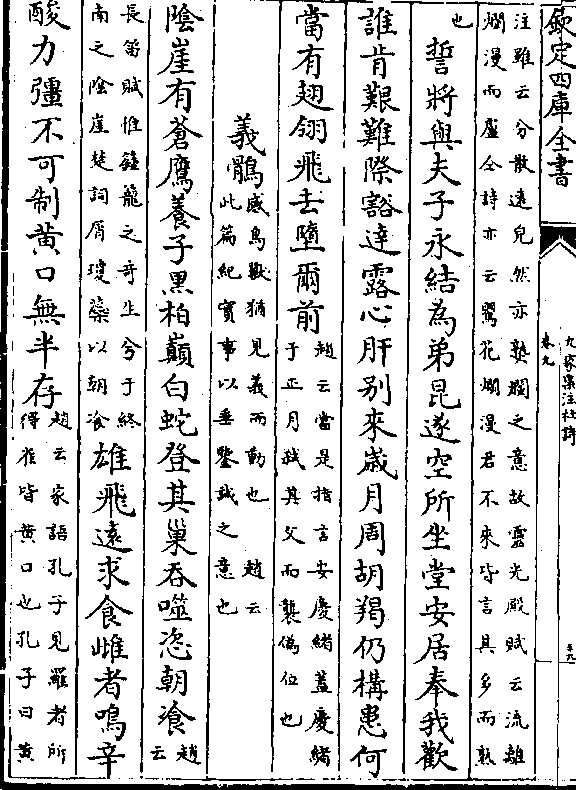 欽定四庫全書
九家集注杜詩
卷九
注雖云分散遠皃然亦熟爛之意故靈光殿賦云流離
爛漫而盧仝詩亦云鶯花爛漫君不來皆言其多而熟
也
誓將與夫子永結為弟昆遂空所坐堂安居奉我歡
誰肯艱難際豁達露心肝别來歳月周胡羯仍構患何
當有翅翎飛去墮爾前
趙云當是指言安慶緒蓋慶緒
于正月弑其父而襲偽位也
義鶻
感鳥獸猶見義而動也趙云
此篇紀實事以垂鑒誡之意也
陰崖有蒼鷹養子黑柏巔白蛇登其巢吞噬恣朝飡
趙云
長笛賦惟籦籠之奇生兮于終
南之陰崖楚詞屑瓊蘂以朝飡
雄飛遠求食雌者鳴辛
酸力彊不可制黄口無半存
趙云家語孔子見羅者所
得雀皆黄口也孔子曰黄